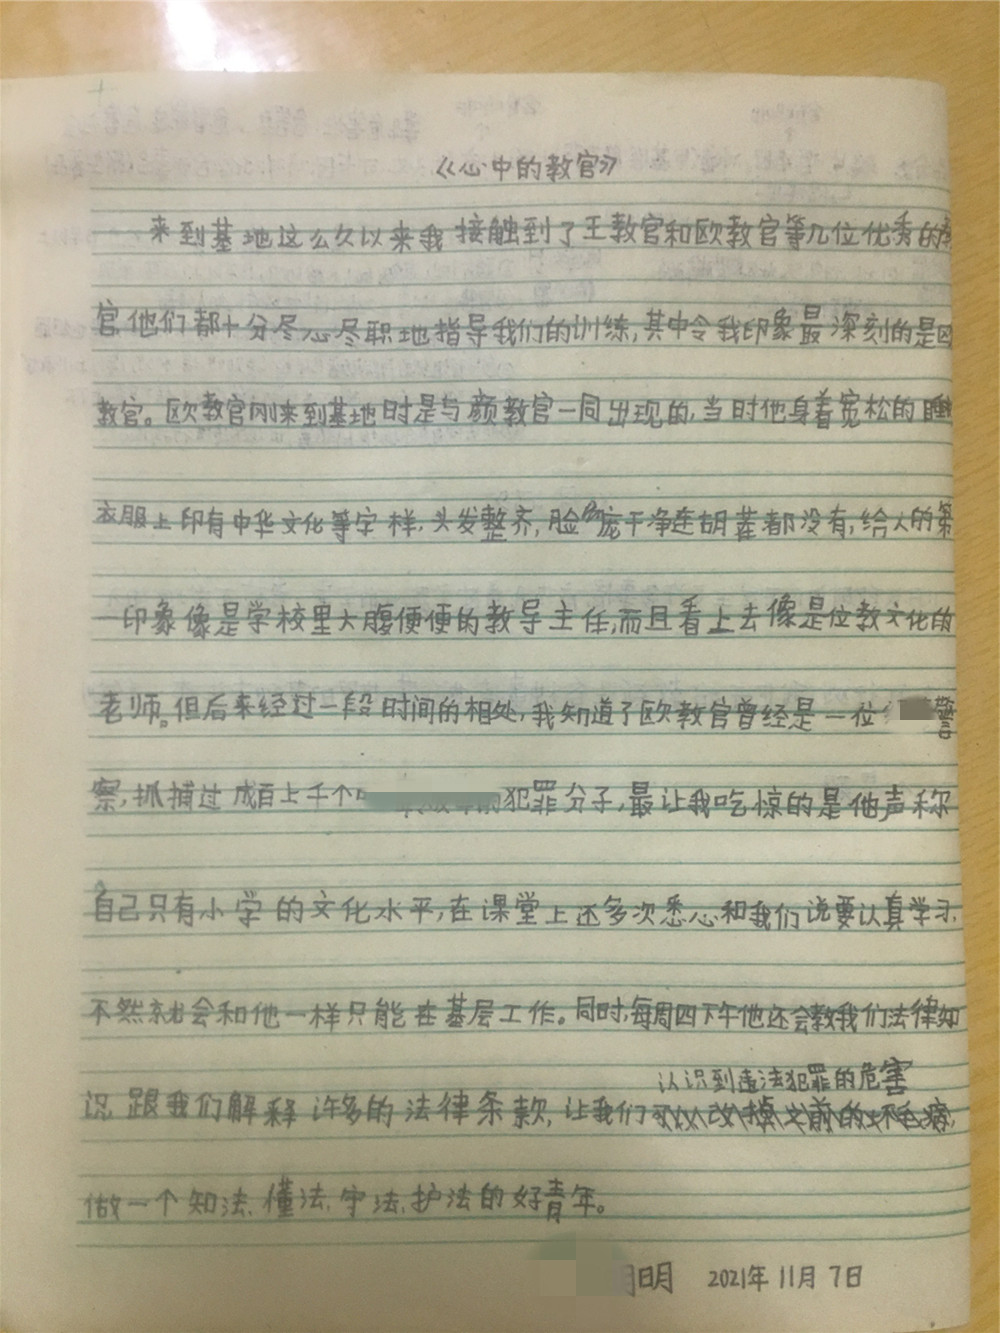 《心中的教官》
来到基地这么久以来我接触到了王教官和欧教官等几位优秀的教
官他们都十分尽心尽职地指导我们的训练,其中令我印象最深刻的是欧
教官。欧教官刚来到基地时是与颜教官一同出现的,当时他身着宽松的睡
衣服上印有中华文化等字样,头发整齐,脸庞干净连胡茬都没有,给人的第
一印象像是学校里大腹便便的教导主任,而且看上去像是位教文化的
老师。但后来经过一段时间的相处,我知道了欧教官曾经是一位 警
察,抓捕过成百上千个 犯罪分子,最让我吃惊的是他声称
自己只有小学的文化水平,在课堂上还多次悉心和我们说要认真学习,
不然就会和他一样只能在基层工作。同时,每周四下午他还会教我们法律知
识,跟我们解释许多的法律条款,让我们认识到违法犯罪的危害
做一个知法、懂法、守法、护法的好青年。
明 2021年11月7日